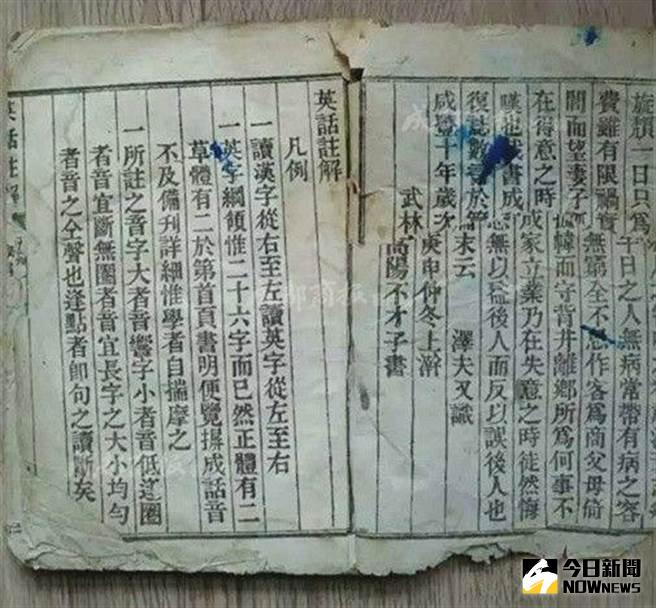 旋頹一日只為千日之人無病常帶有病之容
費雖有限禍實無窮全不思作客為商父母倚
閭而望妻子何幃而守背井離鄉所為何事不
在得意之時成家立業乃在失意之時徒然悔
嘆也哉書成恐無以益後人而反以誤後人也
復誌數於篇末云 澤夫又識
咸豐十年歲次庚申仲冬上澣
武林高陽不才子書
英話註解
凡例
一讀漢字從右至左讀英字從左至右
一英字綱領惟二十六字而已然正體有二
草體有二於第首頁書明便覽摒成話音
不及備刊詳細惟學者自揣摩之
一所註之音字大者音響字小者音低逢圈
者音宜斷無圈者音宜長字之大小均勻
者音之仝聲也逢點者卽句之讀斷矣
英話註解
今日新聞
NOWNEWS